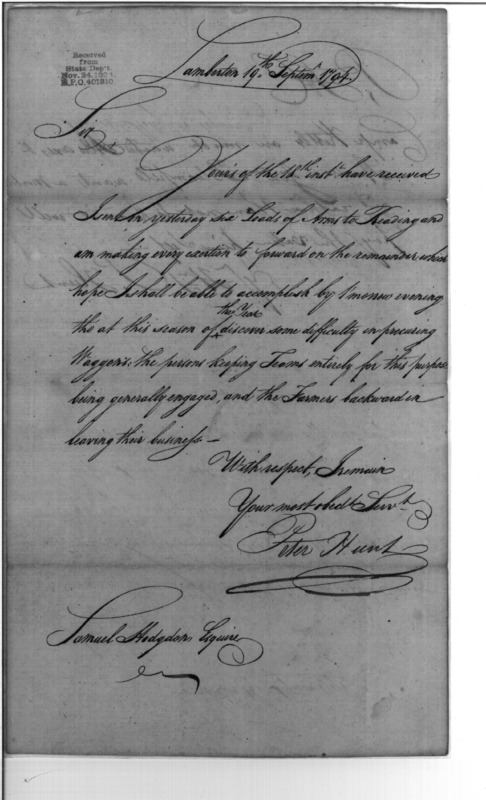 Received
from
State Dept.
Nov. 24, 1894
R.P.O. 401310
Lamberton 19th Septemr 1794.
Sir
Yours of the 18th inst. have received
I sent on yesterday six Loads of Arms to Reading and
am making every exertion to forward on the remainder which
hope I shall be able to accomplish by tomorrow evening
the Year
tho at this season of discover some difficulty in procuring
Waggons. the persons keeping Teams entirely for this purpose
being generally engaged, and the Farmers backward in
leaving their business—
With respect, I remain
Your most obedt. Servt.
Peter Hunt
Samuel Hodgdon Esquire